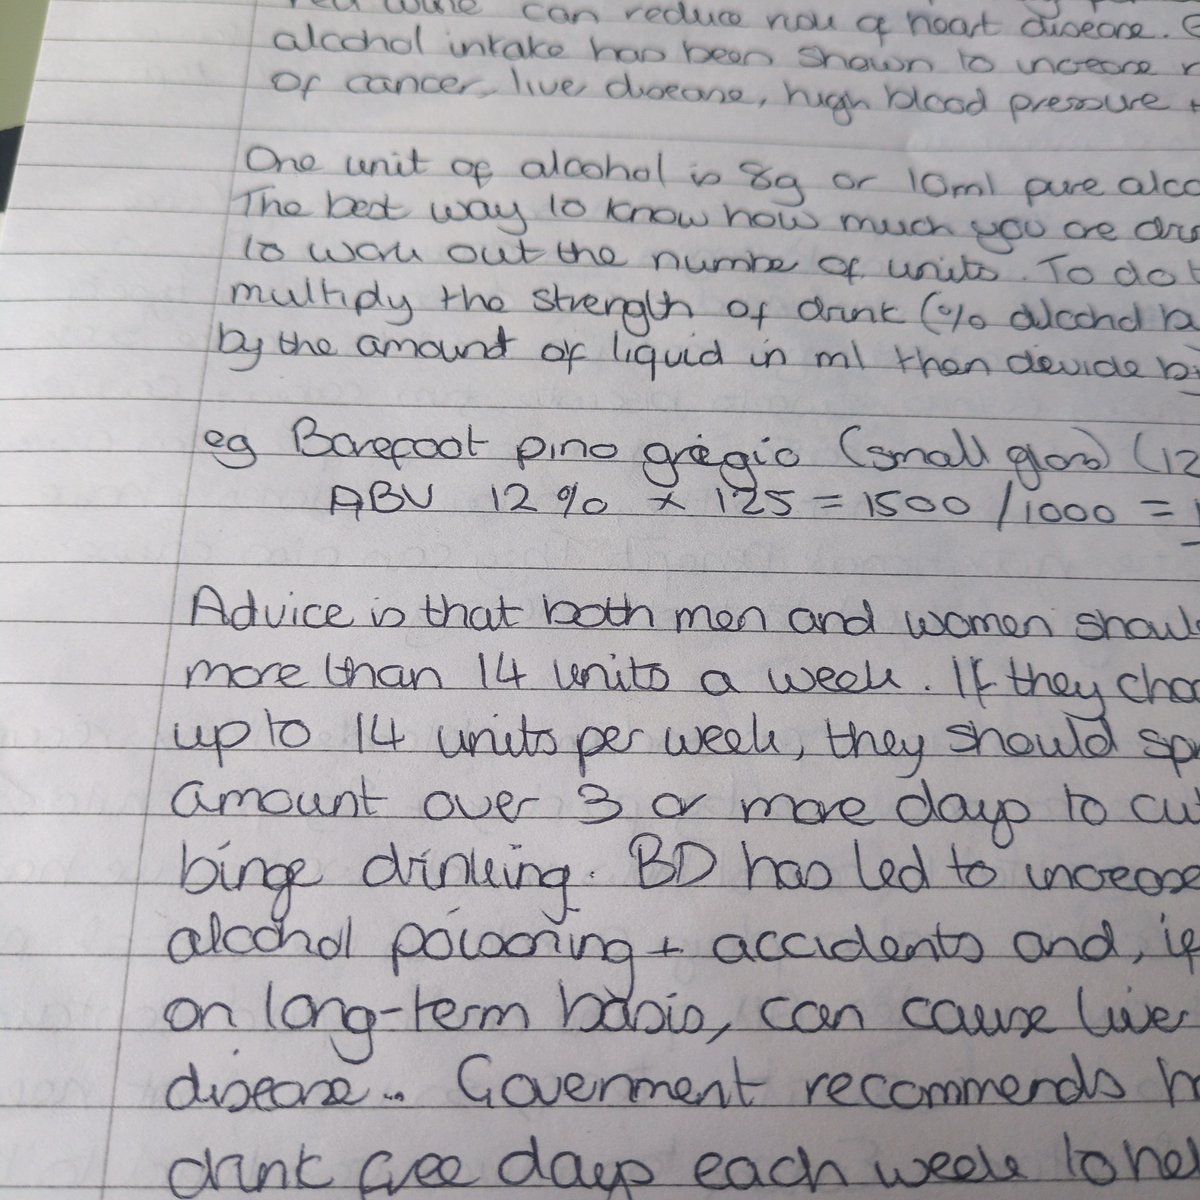 red wine can reduce risk of heart disease.
alcohol intake has been shown to increase
of cancer, live disease, high blood pressure +
One unit of alcohol is 8g or 10ml pure alco
The best way to know how much you are
to work out the number of units. To do
multiply the strength of drink (% alcohol
by the amount of liquid in ml then devide
eg Barefoot pino gregio (small glass) (12
ABV 12% x 125 = 1500 / 1000 =
Advice is that both men and women shoul
more than 14 units a week. If they cho
up to 14 units per week, they should sp
amount over 3 or more days to cu
binge drinking. BD has led to increase
alcohol poisoning + accidents and, if
on long-term basis, can cause liver
disease.. Goverment recommends
drink free days each week to hel